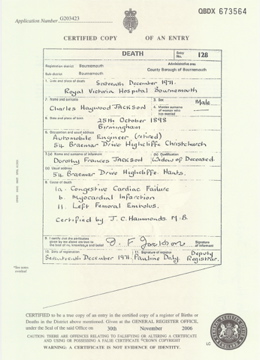 QBDX 673564
Application Number G203423
CERTIFIED COPY OF AN ENTRY
DEATH
Entry No. 128
Registration district Bournemouth
Administrative area
Sub-district Bournemouth
County Borough of Bournemouth
1. Date and place of death Sixteenth December 1971.
Royal Victoria Hospital Bournemouth
2. Name and surname
3. Sex Male
Charles Haywood JACKSON
4. Maiden surname of woman who has married
5. Date and place of birth 25th October 1898
Birmingham
6. Occupation and usual address
Automobile Engineer (retired)
5a Braemar Drive Highcliffe Christchurch
7. (a) Name and surname of informant
(b) Qualification
Dorothy Frances JACKSON Widow of Deceased
(c) Usual address
5a Braemar Drive Highcliffe Hants.
8. Cause of death
1a. Congestive Cardiac Failure
b. Myocardial Infarction
11. Left Femoral Embolus.
Certified by J.C. Hammonds M.B.
Signature of informant
10. Date of registration
11. Signature of registrar
Seventeenth December 1971 Pauline Daly Deputy Registrar
CERTIFIED to be a true copy of an entry in the certified copy of a register of Births or
Deaths in the District above mentioned. Given at the GENERAL REGISTER OFFICE,
under the Seal of the said Office on 30th November 2006
CAUTION: THERE ARE OFFENCES RELATING TO FALSIFYING OR ALTERING A CERTIFICATE
AND USING OR POSSESSING A FALSE CERTIFICATE ©CROWN COPYRIGHT
WARNING: A CERTIFICATE IS NOT EVIDENCE OF IDENTITY.